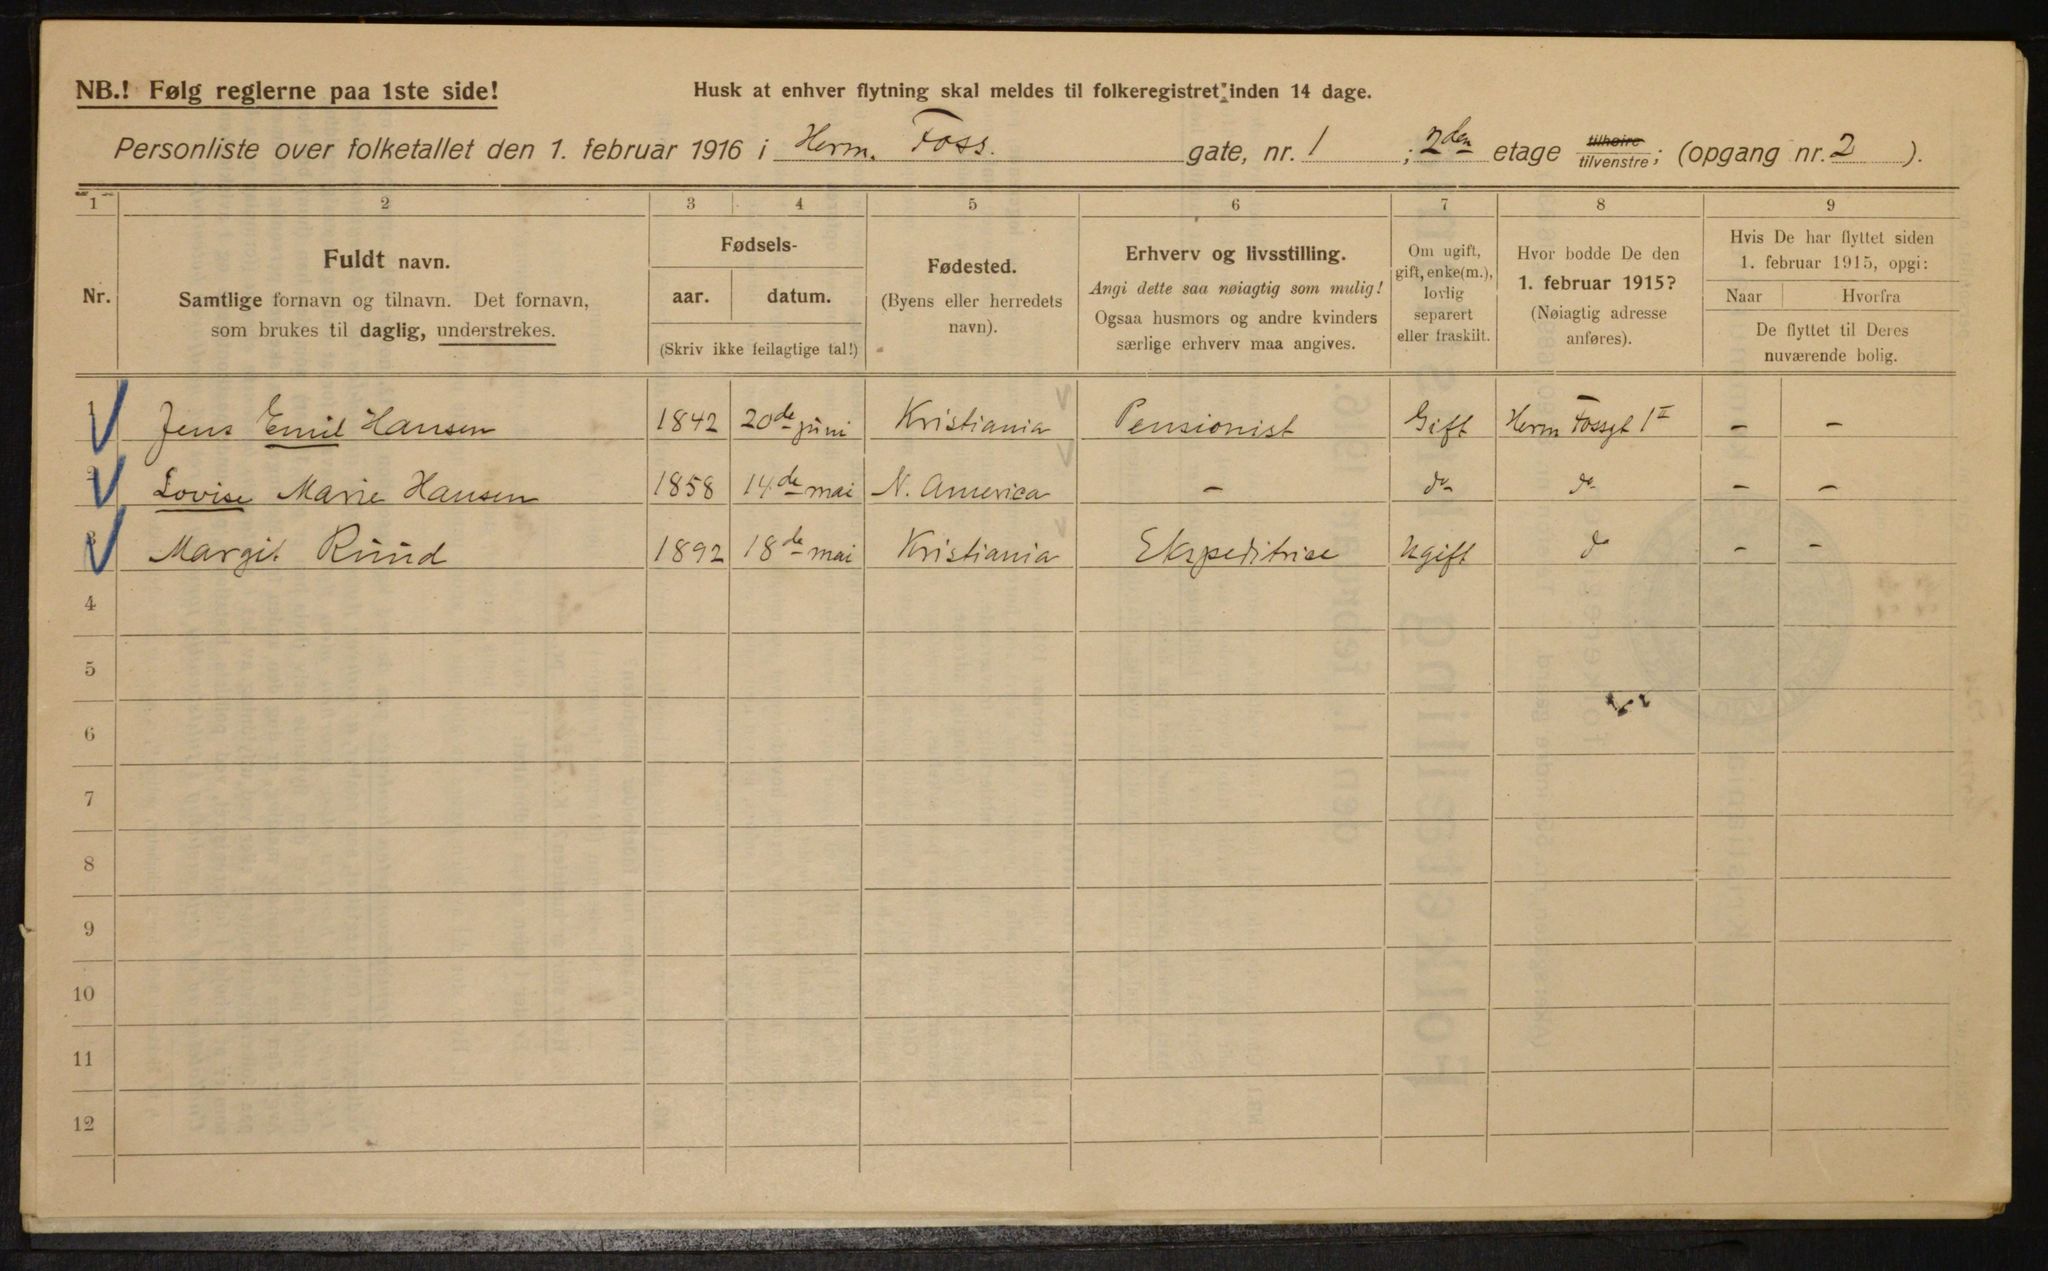 NB.! Følg reglerne paa 1ste side!
Husk at enhver flytning skal meldes til folkeregistret inden 14 dage.
Personliste over folketallet den 1. februar 1916 i Herm. Foss. gate, nr. 1 ; 2den etage tilhøire tilvenstre; (opgang nr. 2 ).
1 2 3 4 5 6 7 8 9
Nr.
Fuldt navn.
Samtlige fornavn og tilnavn. Det fornavn,
som brukes til daglig, understrekes.
Fødsels-
aar. datum.
(Skriv ikke feilagtige tal!)
Fødested.
(Byens eller herredets
navn).
Erhverv og livsstilling.
Angi dette saa nøiagtig som mulig!
Ogsaa husmors og andre kvinders
særlige erhverv maa angives.
Om ugift,
gift, enke(m.),
lovlig
separert
eller fraskilt.
Hvor bodde De den
1. februar 1915?
(Nøiagtig adresse
anføres).
Hvis De har flyttet siden
1. februar 1915, opgi:
Naar Hvorfra
De flyttet til Deres
nuværende bolig.
1 Jens Emil Hansen 1842 20de juni Kristiania Pensionist Gift Herm Fossgt 1 II - -
2 Lovise Marie Hansen 1858 14de mai N. America - do do - -
3 Margit Ruud 1892 18de mai Kristiania Ekspeditrise Ugift do - -
4
5
6
7
8
9
10
11
12